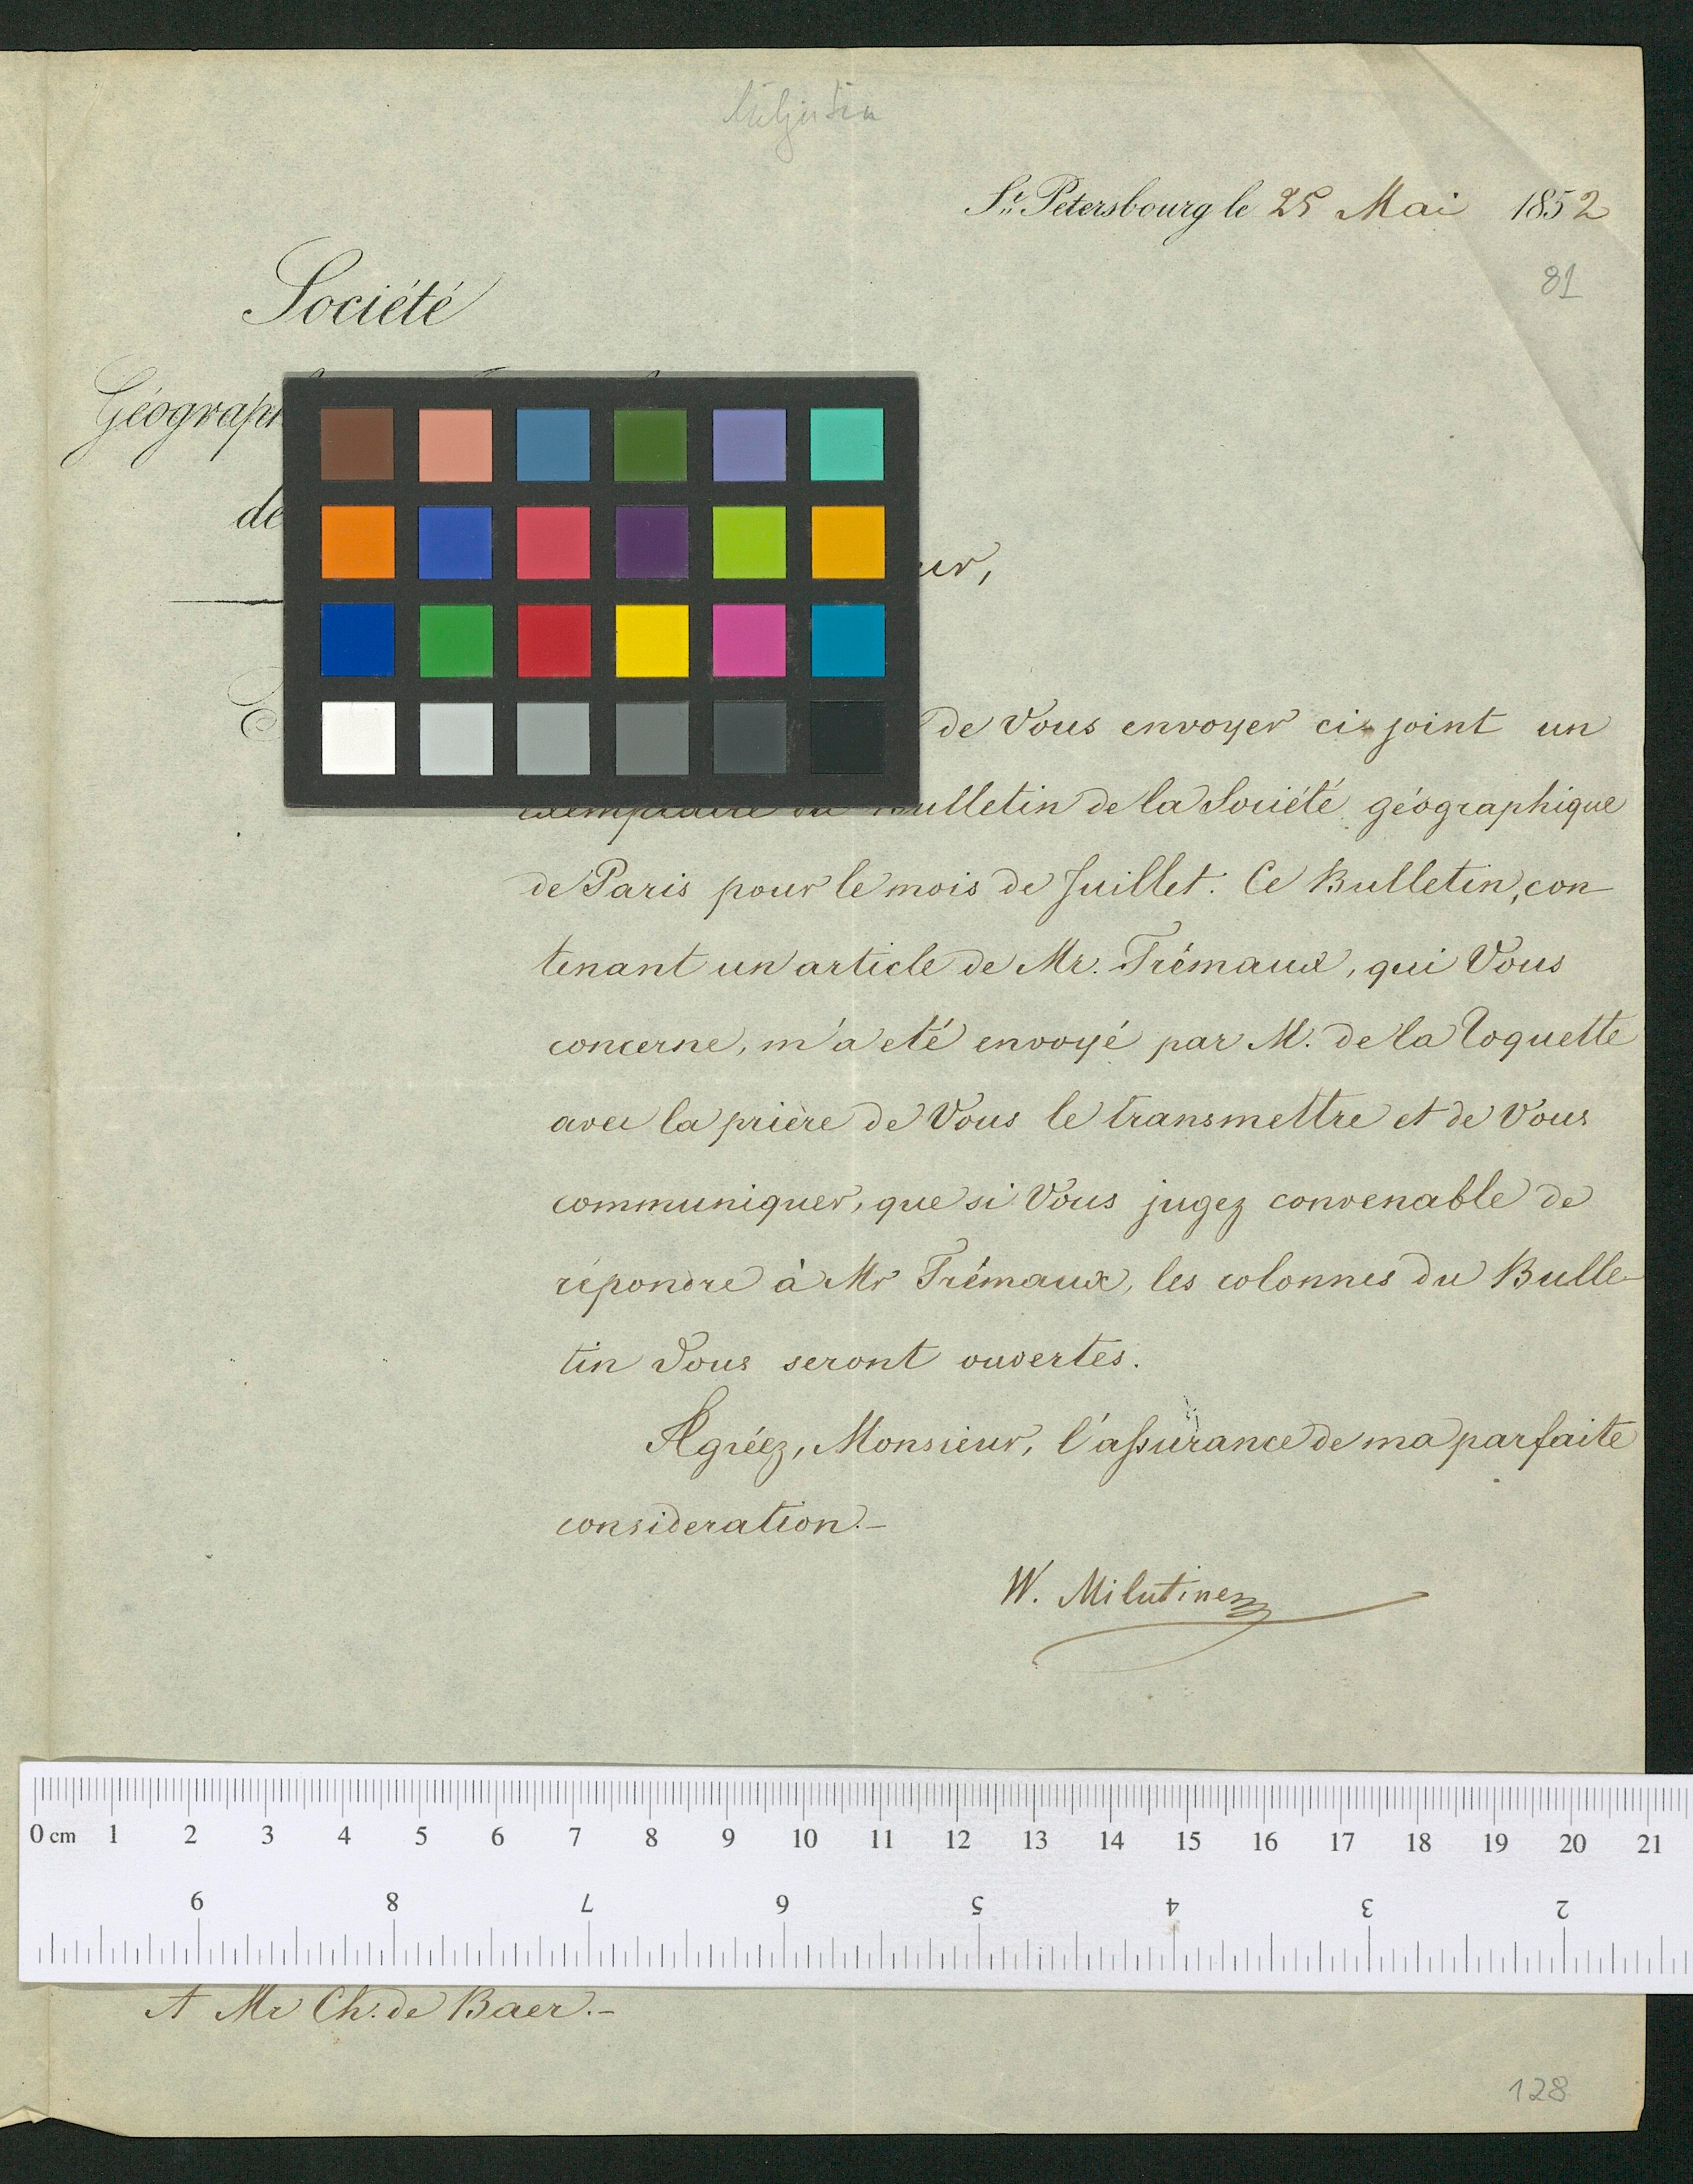 St. Petersbourg le 25 Mai 1852
81
Société
Géograph
de
ur,
de Vous envoyer ci-joint un
exemplaire du Bulletin de la Société géographique
de Paris pour le mois de Juillet. Ce Bulletin, con-
tenant un article de Mr. Trémaux, qui Vous
concerne, m'a eté envoyé par M. de la Roquette
avec la prière de Vous le transmettre et de Vous
communiquer, que si Vous jugez convenable de
répondre à Mr Trémaux, les colonnes du Bulle-
tin Vous seront ouvertes.
Agréez, Monsieur, l'assurance de ma parfaite
consideration.-
W. Milutine
0 cm 1 2 3 4 5 6 7 8 9 10 11 12 13 14 15 16 17 18 19 20 21
9 8 7 6 5 4 3 2
A Mr Ch. de Baer.-
128